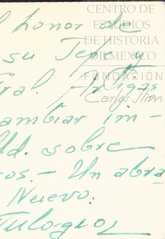 CENTRO DE
ESTUDIOS
DE HISTORIA
DE MEXICO
FUNDACIÓN
Carlos Slim
l honor de
su Jefe y
Gral. Artigas
cambiar im-
Ud. sobre
ros.- Un abra-
Nuevo.